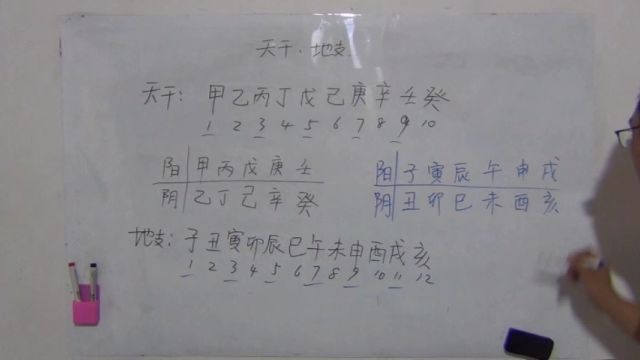 天干·地支
天干：甲乙丙丁戊己庚辛壬癸
1 2 3 4 5 6 7 8 9 10
阳 甲丙戊庚壬
阴 乙丁己辛癸
阳 子寅辰午申戌
阴 丑卯巳未酉亥
地支：子丑寅卯辰巳午未申酉戌亥
1 2 3 4 5 6 7 8 9 10 11 12